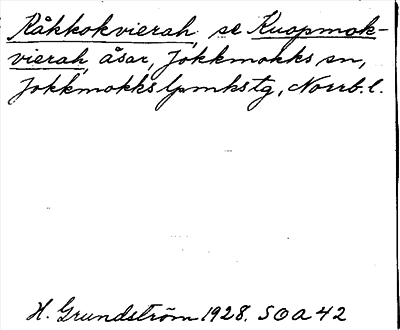 Råkkokvierah, se Kuopmok-
vierah, åsar, Jokkmokks sn,
Jokkmokks lpmkstg, Norrb. l.
H. Grundström 1928. SOA 42